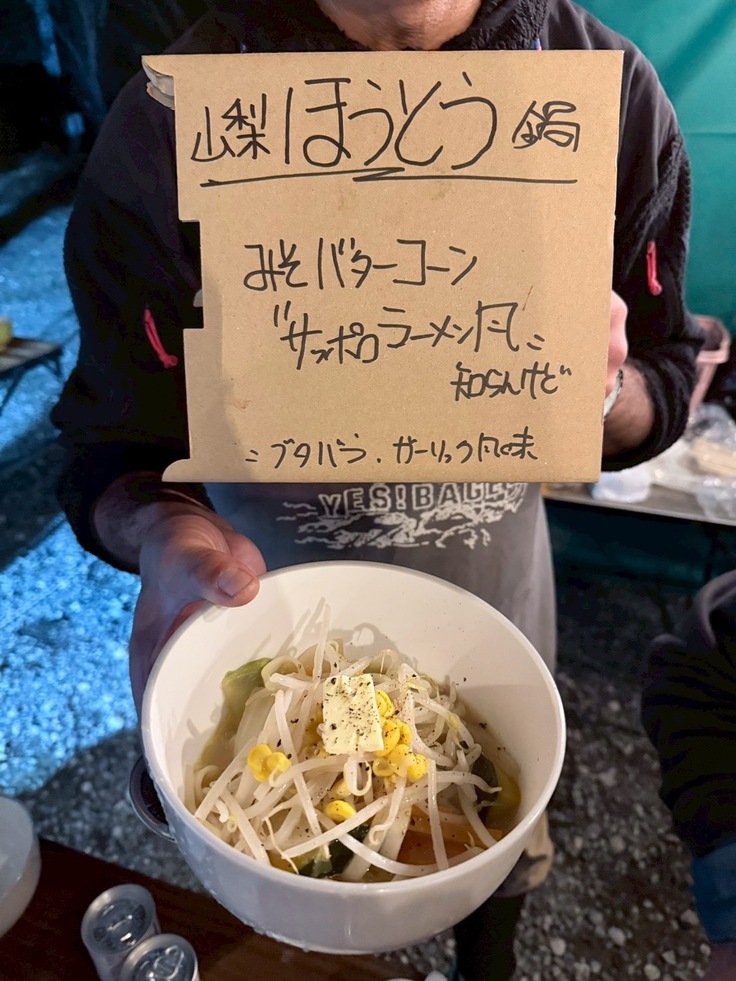 山梨ほうとう鍋
みそバターコーン
"サッポロラーメン風"
知らんけど
=ブタバラ.ガーリック風味
YES!BAGEL